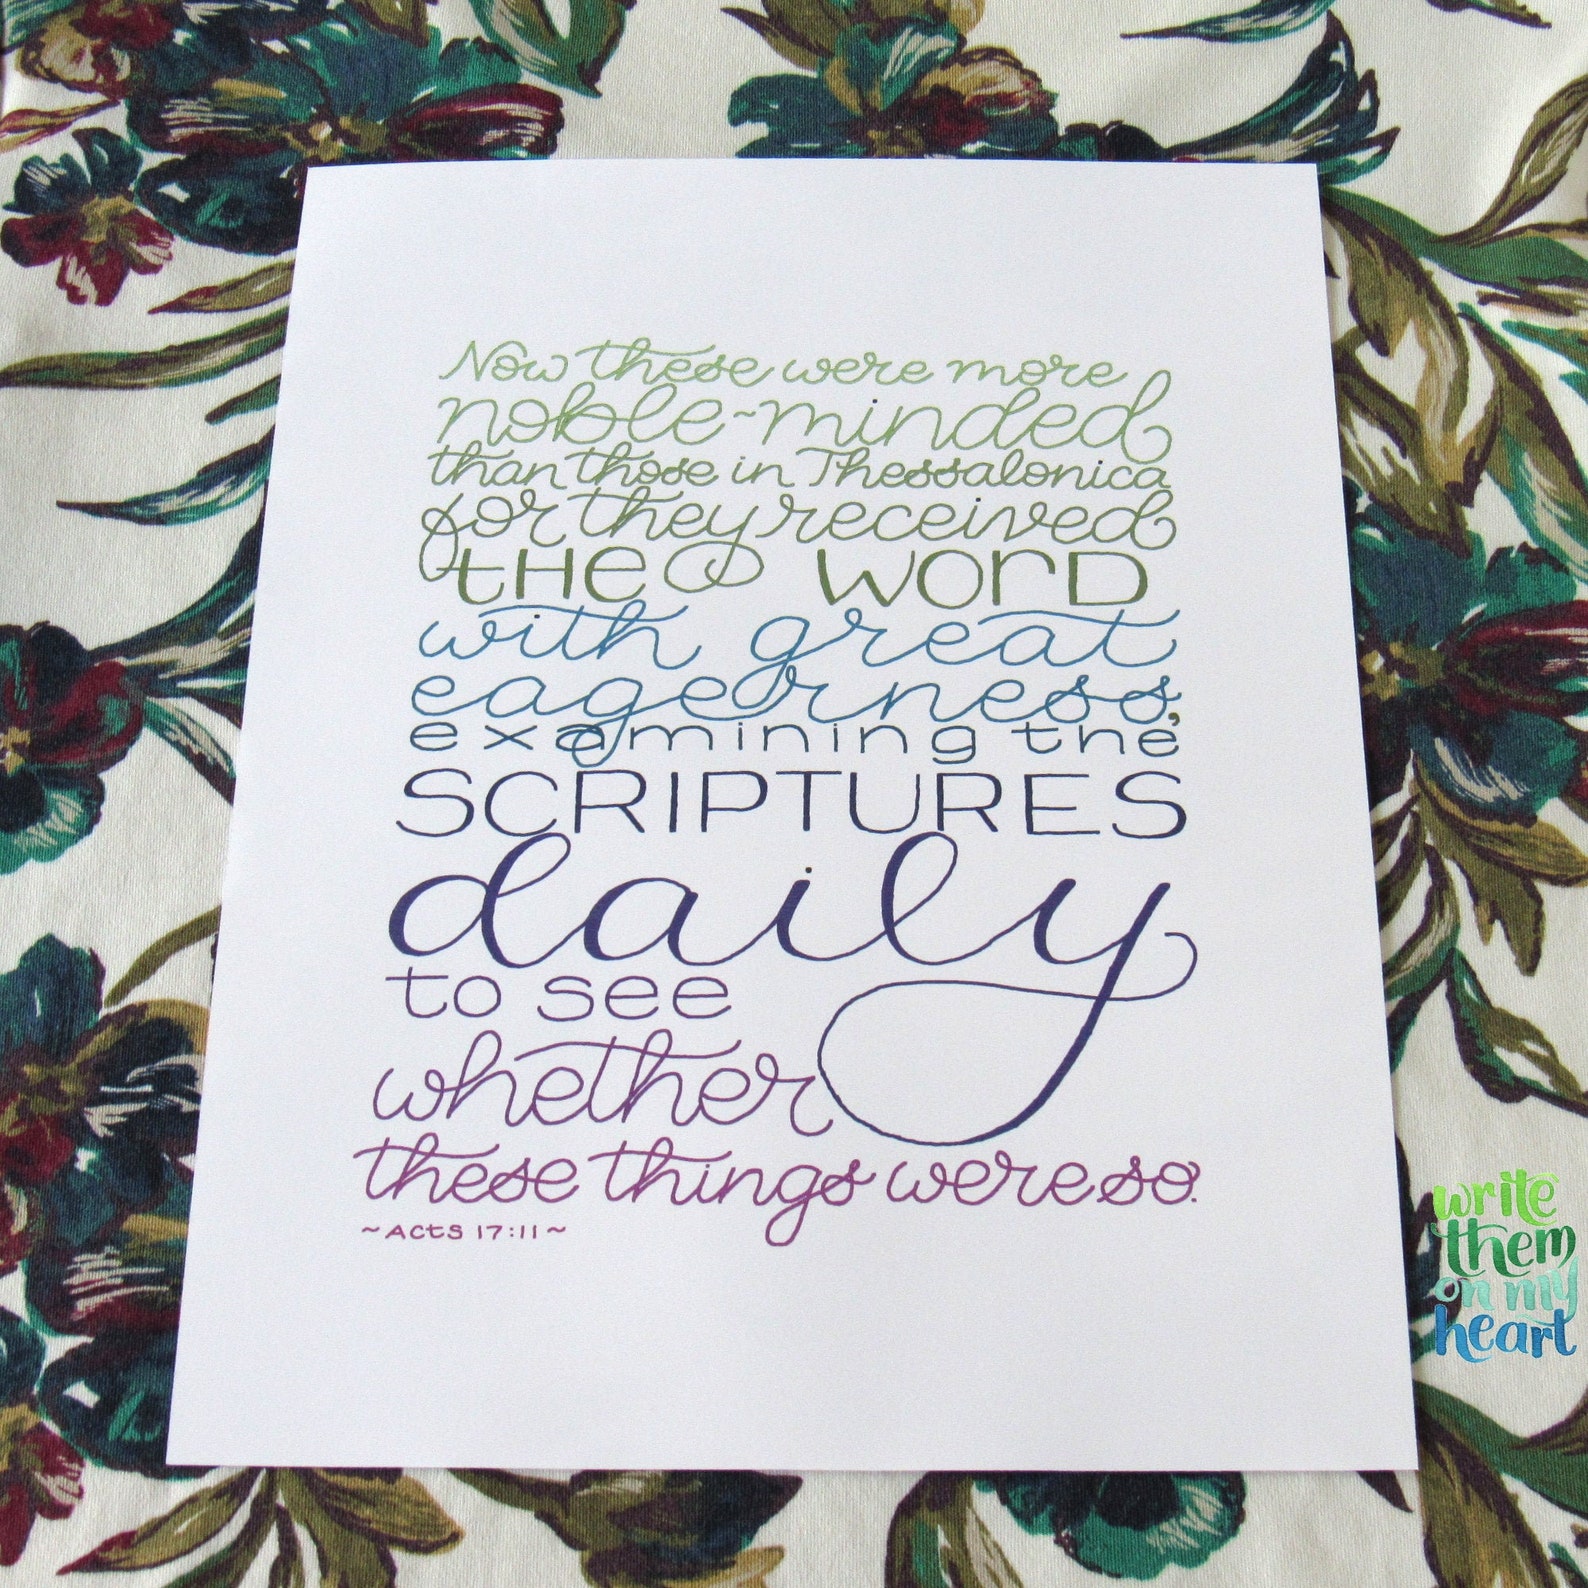 Now these were more
noble~minded
than those in Thessalonica
for they received
THE WORD
with great
eagerness,
examining the
SCRIPTURES
daily
to see
whether
these things were so.
~ACTS 17:11~
write
them
on my
heart